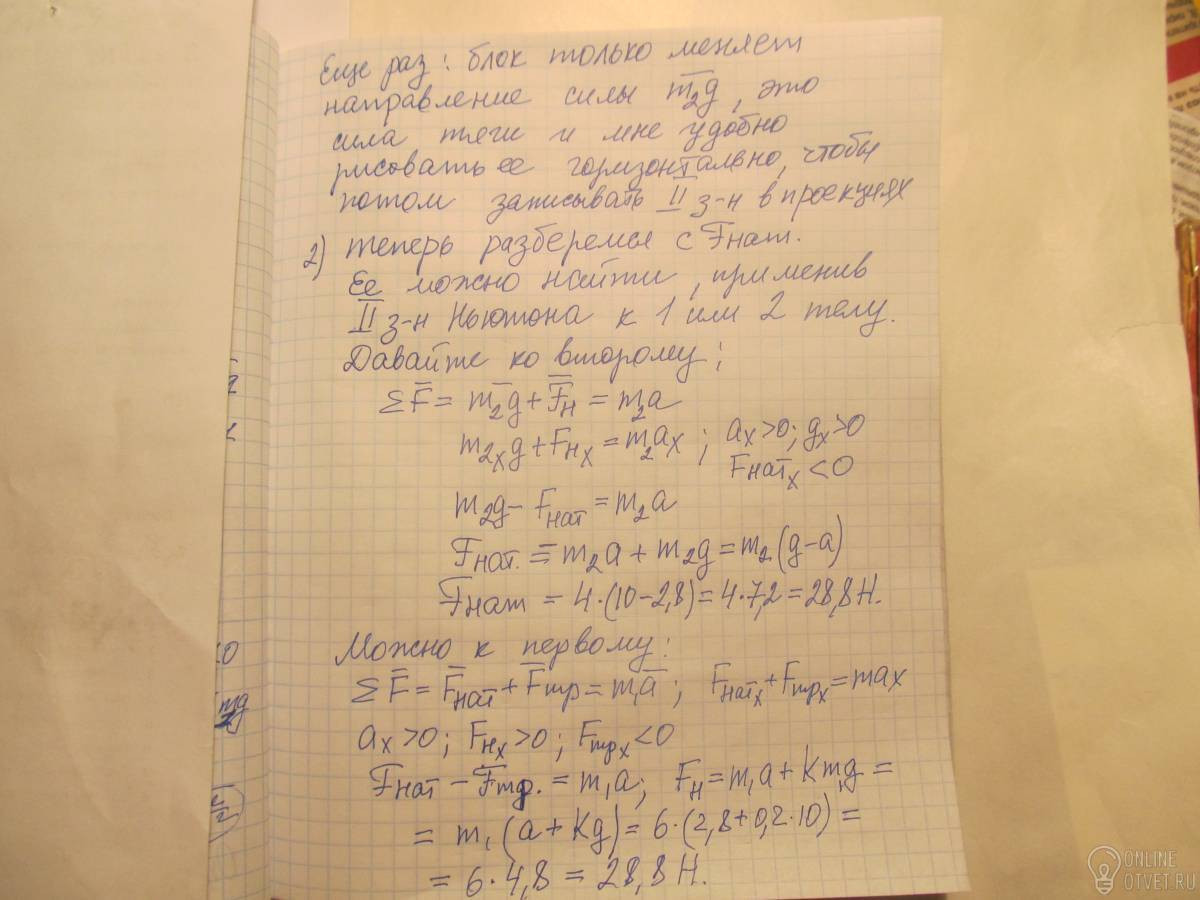 Еще раз: блок только меняет
направление силы m̅₂g, это
сила тяги и мне удобно
рисовать ее горизонтально, чтобы
потом записывать II з-н в проекциях
2) теперь разберемся с Fнат.
Ее можно найти, применив
II з-н Ньютона к 1 или 2 телу.
Давайте ко второму;
ΣF̅ = m̅₂g + F̅н = m₂a̅
m₂ₓg + Fнₓ = m₂aₓ ; aₓ>0; gₓ>0
Fнатₓ<0
m₂g - Fнат = m₂a
Fнат. = m₂a + m₂g = m₂(g-a)
Fнат = 4·(10-2,8) = 4·7,2 = 28,8 Н.
Можно к первому:
ΣF̅ = F̅нат + F̅тр = m₁a̅; Fнатₓ + Fтрₓ = maₓ
aₓ>0; Fнₓ>0; Fтрₓ<0
Fнат - Fтр. = m₁a; Fн = m₁a + Km₁g =
= m₁(a+Kg) = 6·(2,8+0,2·10) =
= 6·4,8 = 28,8 Н.
ONLINE
OTVET.RU